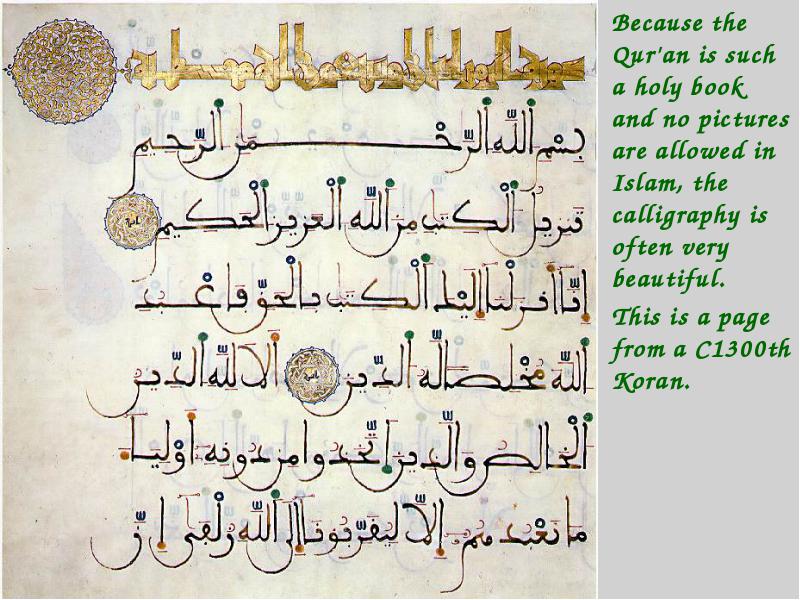 بسم الله الرحمن الرحيم
تنزيل الكتب من الله العزيز الحكيم
انا انزلنا اليك الكتب بالحق فاعبد
الله مخلصا له الدين الا لله الدين
الخالص والذين اتخذوا من دونه اولياء
ما نعبدهم الا ليقربونا الى الله زلفى ان
Because the
Qur'an is such
a holy book
and no pictures
are allowed in
Islam, the
calligraphy is
often very
beautiful.
This is a page
from a C1300th
Koran.